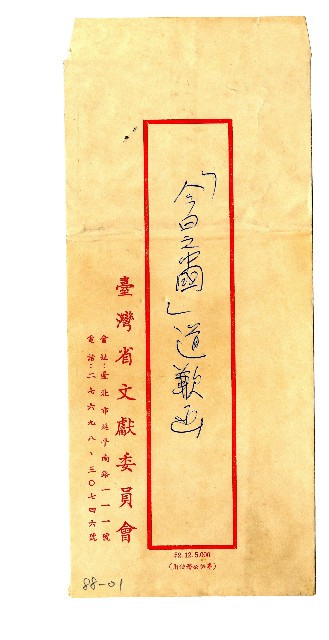 「今日之中國」道歉函
臺灣省文獻委員會
會址:臺北市延平南路一一一號
電話:二七六九八、三〇七四六號
52.12.5.000
(用位公務公限)
88-01